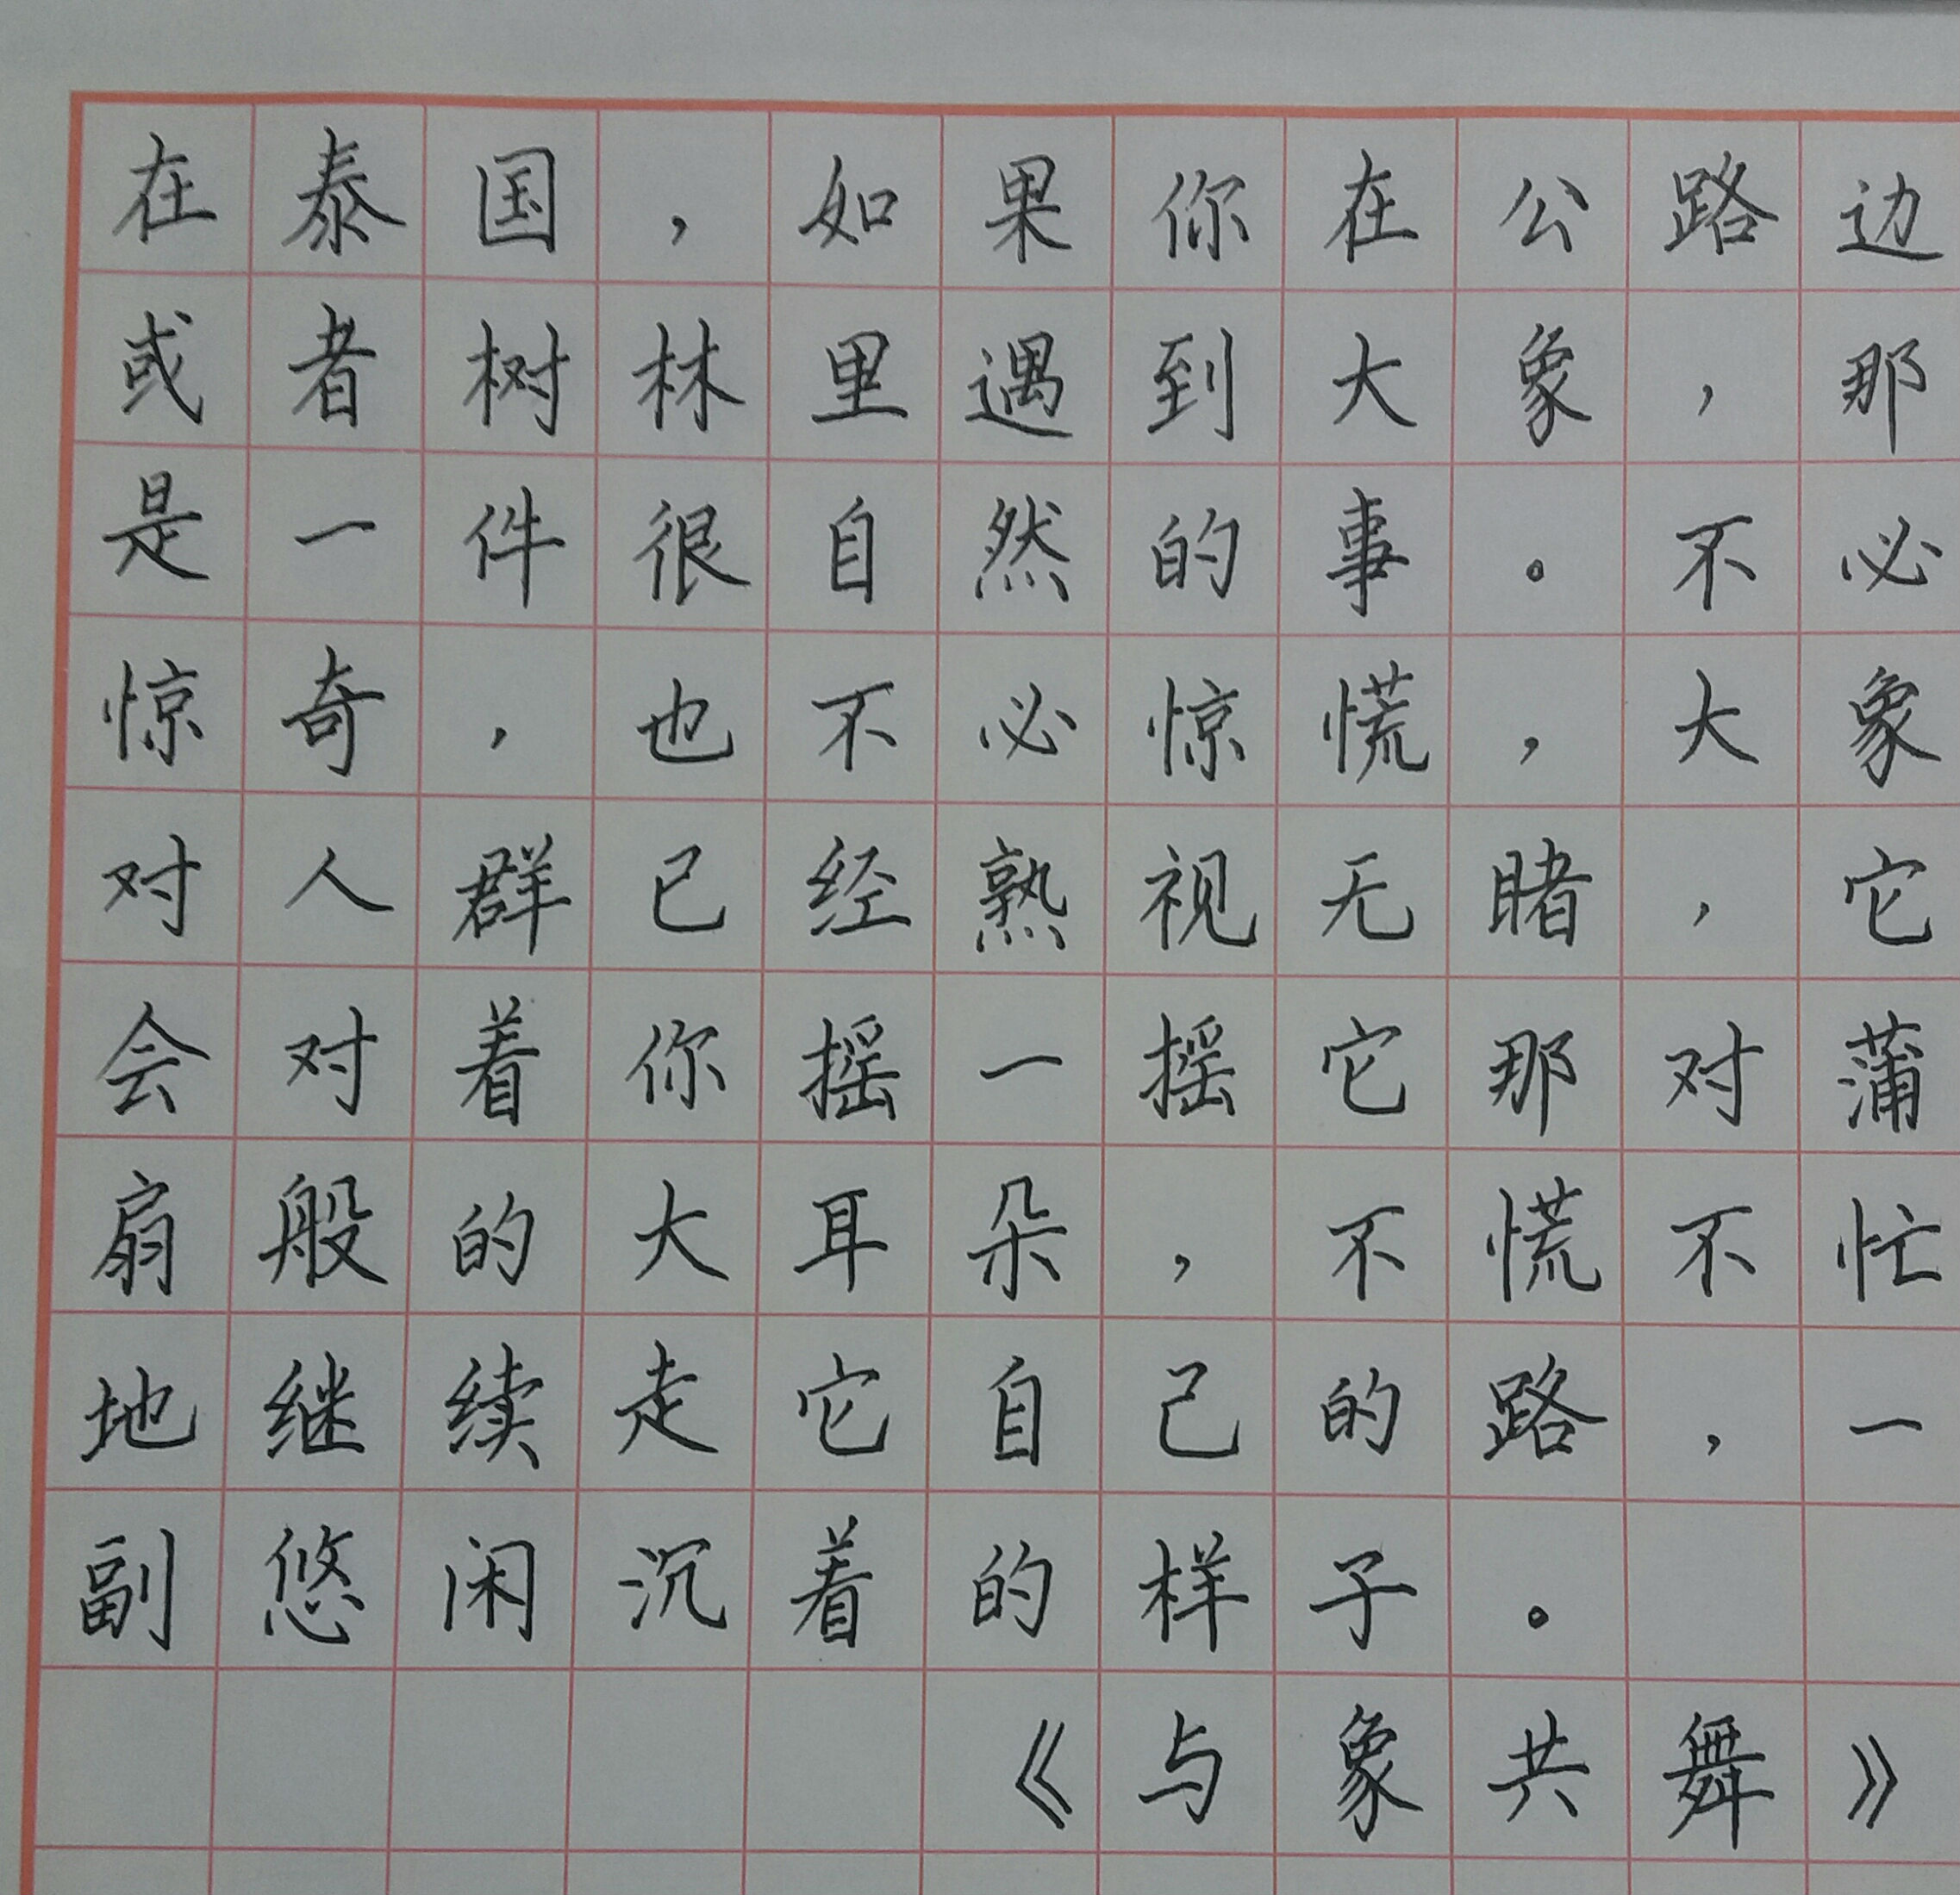 在泰国，如果你在公路边
或者树林里遇到大象，那
是一件很自然的事。不必
惊奇，也不必惊慌，大象
对人群已经熟视无睹，它
会对着你摇一摇它那对蒲
扇般的大耳朵，不慌不忙
地继续走它自己的路，一
副悠闲沉着的样子。
《与象共舞》